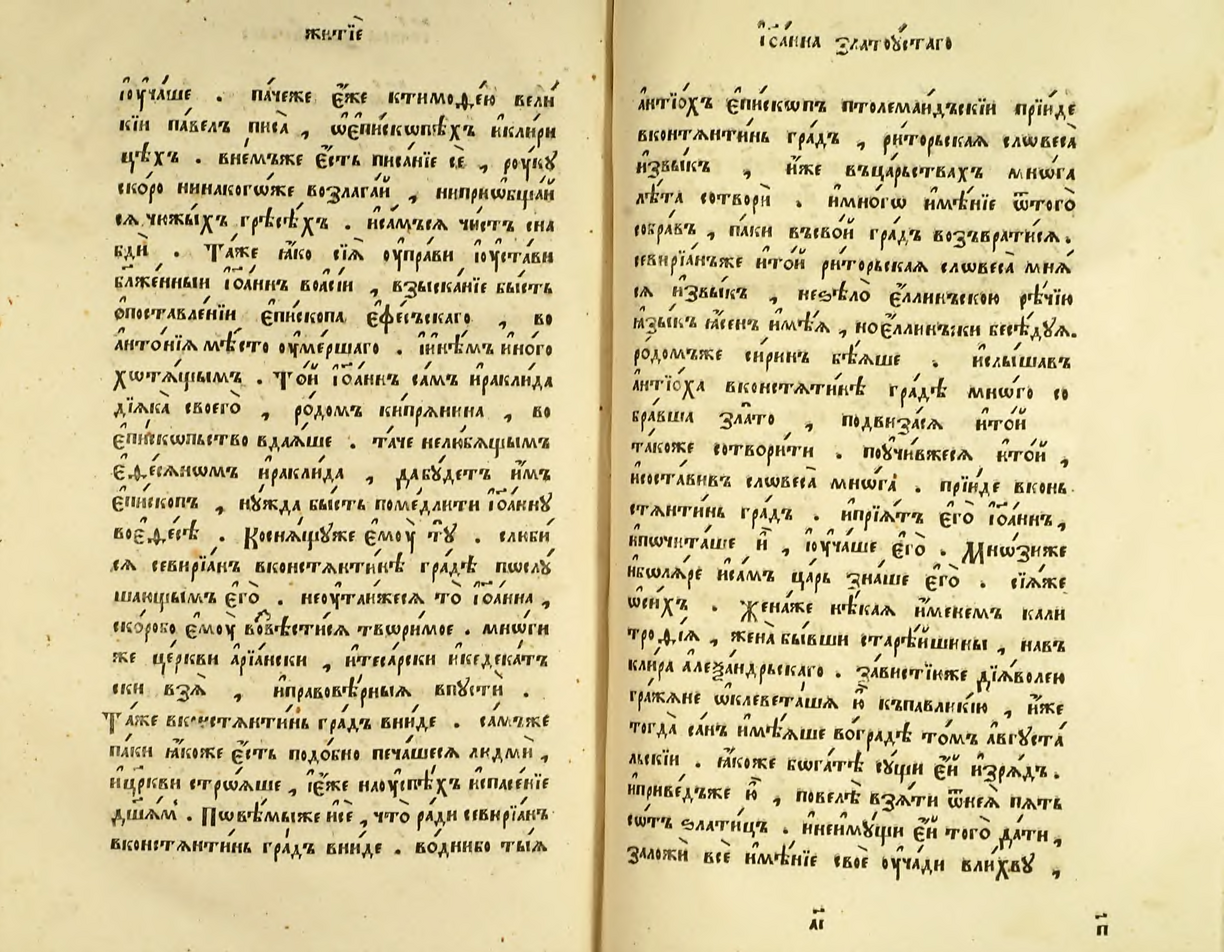 житїѐ
іоу҆ча́ше . па́чеже є҆́же ктимоѳ́ею вели́
кїи па́велъ писа̀ , ѡ҆є҆пи́скопѣхъ и҆кли́ри
цѣхъ . вне́мъже є҆́сть писа́нїе сѐ , роукꙋ̀
ско́ро нинакого́же возлага́й , ниприѡ҆бща́й
сѧ чюжы́хъ грѣсѣ́хъ . и҆са́мъсѧ чи́стъ сна
бдѝ . Та́же ꙗ҆́ко сїѧ̀ оу҆пра́ви іоу҆ста́ви
бл҃же́нныи і҆ѡа́ннъ во́а҆сїи , взыска́нїе бы́сть
ѡ҆поставле́нїи є҆пи́скопа є҆фе́съскаго , во
а҆нто́нїѧ мѣ́сто оу҆ме́ршаго . і҆и҆нѣ́мъ и҆но́го
хотѧ́щымъ . То́й і҆ѡа́ннъ са́мъ и҆ракли́да
дїѧ́ка своего̀ , ро́домъ ки́прѧнина , во
є҆пи́скопьство вдаѧ́ше . та́че нелю́бѧщымъ
є҆ѳ́есѧномъ и҆ракли́да , дабꙋ́детъ и҆́мъ
є҆пи́скопъ , нꙋ́жда бы́сть поме́длити і҆ѡа́ннꙋ
вое҆ѳ́есѣ . Коснѧ́щꙋже є҆моу҆̀ тꙋ̀ . слюби́
сѧ севирїа́нъ вконстѧнти́нѣ гра́дѣ послꙋ́
шающымъ є҆го̀ . неоу҆таи́жесѧ то̀ і҆ѡа́нна ,
ско́робо є҆моу҆̀ вовѣсти́сѧ твори́мое . мно́ги
же це́ркви а҆рїа́нски , и҆тесарски и҆кедека́тъ
ски взѧ̀ , и҆правовѣ́рныѧ впꙋстѝ .
Та́же вконстѧнти́нь гра́дъ вни́де . са́мъже
па́ки ꙗ҆́коже є҆́сть подо́бно печа́шесѧ людмѝ ,
и҆цр҃кви строѧ́ше , і҆є҆́же наоу҆спѣ́хъ и҆спасе́нїе
дш҃а́мъ . Повѣ́мыже и҆сѐ , что̀ ра́ди севирїа́нъ
вконстѧнти́нь гра́дъ вни́де . во́днибо ты́ѧ
і҆ѡа́нна златоꙋ́стаго
а҆нтїо́хъ є҆пи́скопъ птолемаи́дъскїи прїи́де
вконтѧнти́нь гра́дъ , ри́торьскаѧ словеса̀
и҆звы́къ , и҆́же въца́рьствахъ мно́га
лѣ́та сотворѝ . и҆мно́го и҆мѣ́нїе ѿтого̀
собра́въ , па́ки въсво́й гра́дъ возъврати́сѧ .
севирїа́нъже и҆то́й ри́торьскаѧ словеса̀ мнѧ́
сѧ и҆звы́къ , неѕѣло̀ є҆́ллинъскою рѣ́чїю
ꙗ҆зы́къ ꙗ҆́сенъ и҆мѣ́ѧ , ное҆́ллинъски бесѣ́дꙋѧ .
ро́домъже си́ринъ бѣ́ѧше . и҆слы́шавъ
а҆нтїо́ха вконстѧнти́нѣ гра́дѣ мно́го со
бра́вша зла́то , подвиза́сѧ и҆то́й
та́коже сотвори́ти . поу҆чи́вжесѧ и҆то́й ,
и҆соста́вивъ словеса̀ мно́га . прїи́де вконь
стѧнти́нь гра́дъ . и҆прїѧ́тъ є҆го̀ і҆ѡа́ннъ ,
и҆почита́ше и҆̀ , іоу҆ча́ше є҆го̀ . Мно́зиже
и҆болѧ́ре и҆са́мъ ца́рь зна́ше є҆го̀ . сїѧ́же
ѡ҆си́хъ . Жена́же нѣ́каѧ и҆́менемъ кали
тро́ѳїѧ , жена̀ бы́вши старѣ́йшины , навъ
кли́ра а҆леѯа́ндрьскаго . за́вистїюже дїѧ́волею
гра́жѧне ѡ҆клевета́шѧ ю҆̀ къпавли́кїю , и҆́же
тогда̀ са́нъ и҆мѣ́ѧше вогра́дѣ то́мъ а҆́вгꙋста́
льскїи . ꙗ҆́коже бога́тѣ сꙋ́щи є҆́й и҆зрѧ́дъ .
и҆приве́дъже ю҆̀ , повелѣ̀ взѧ́ти ѿнеѧ̀ пѧ́ть
со́тъ ѕлати́цъ . и҆неимꙋ́щи є҆́й того̀ да́ти ,
заложѝ всѐ и҆мѣ́нїе своѐ оу҆ча́ди вли́хвꙋ ,
аі
п